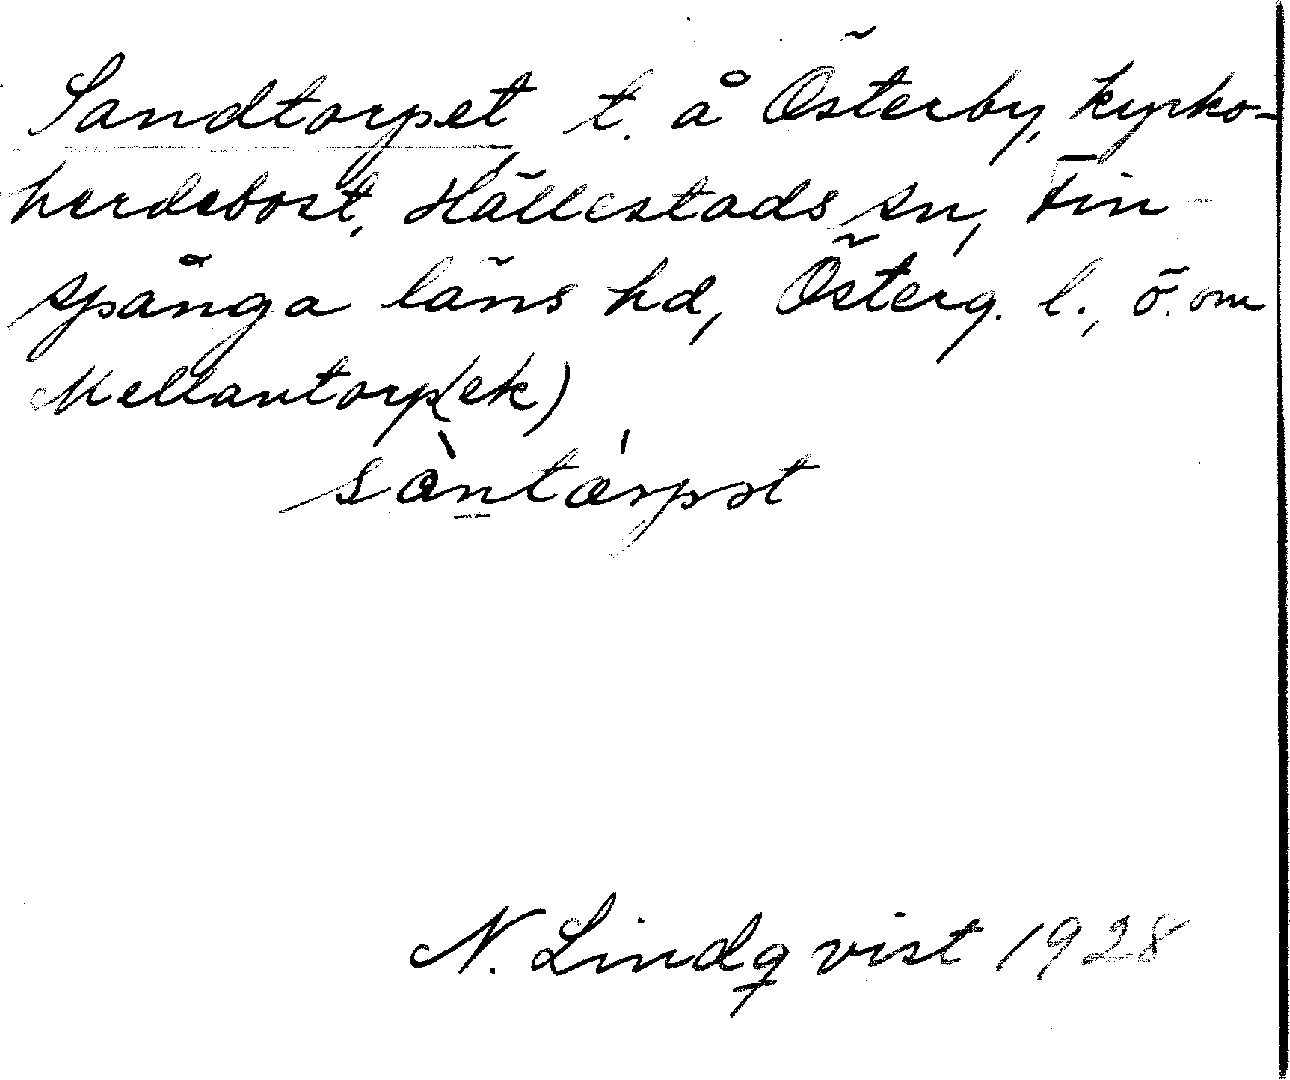 Sandtorpet, t. å Österby, kyrko-
herdebost. Hällestads sn, Fin-
spånga läns hd, Österg. l., ö. om
Mellantorp(ek)
sàntórpət
N. Lindqvist 1928